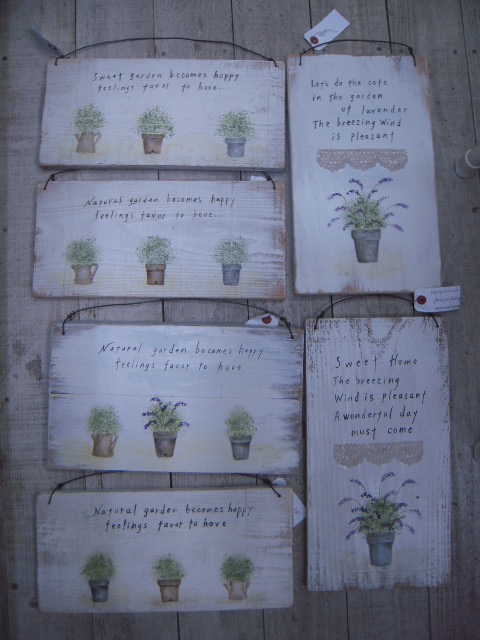 Sweet garden becomes happy
feelings favor to have...
Natural garden becomes happy
feelings favor to have...
Natural garden becomes happy
feelings favor to have
Natural garden becomes happy
feelings favor to have
Let's do the cafe
in the garden
of lavender
The breezing Wind
is pleasant
Sweet Home
The breezing
Wind is pleasant
A wonderful day
must come